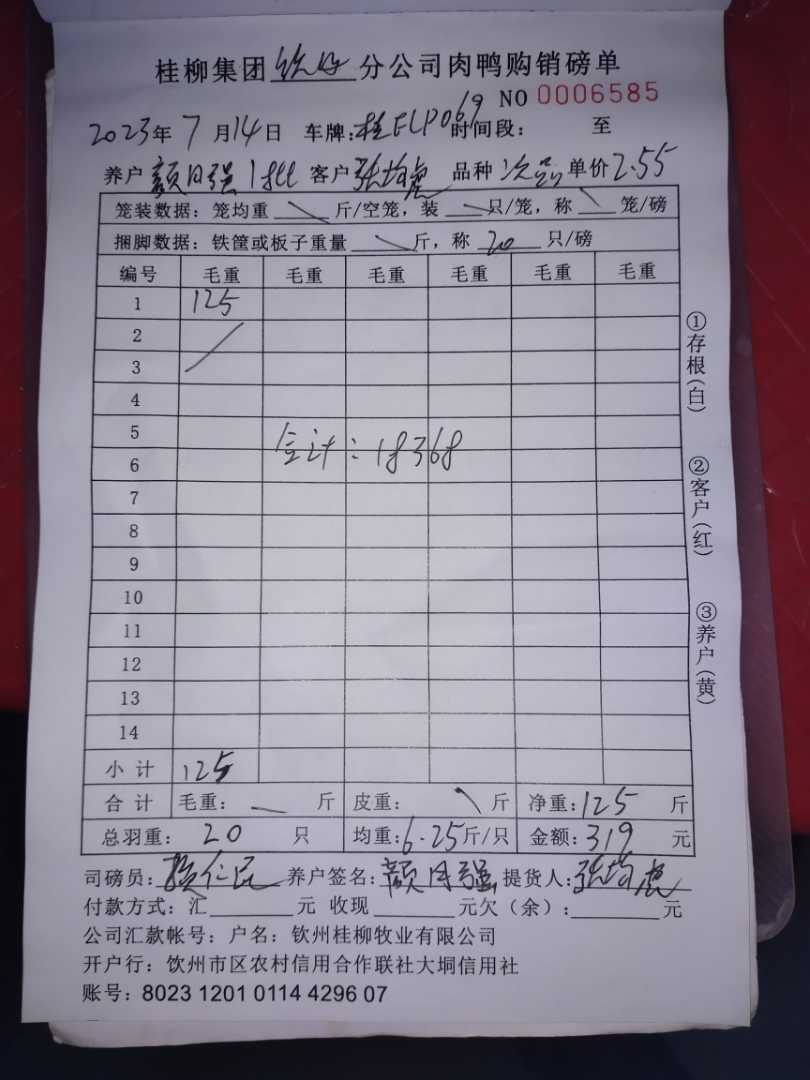 桂柳集团钦州分公司肉鸭购销磅单
NO 0006585
2023年 7月14日 车牌:桂ELP069 时间段: 至
养户 颜日强 1批 客户 张均虎 品种 次品 单价2.55
笼装数据:笼均重 \ 斤/空笼,装 \ 只/笼,称 \ 笼/磅
捆脚数据:铁筐或板子重量 \ 斤,称 20 只/磅
编号 毛重 毛重 毛重 毛重 毛重 毛重
1 125
2
3
4
5
合计:18368
6
7
8
9
10
11
12
13
14
小计 125
合计 毛重: — 斤 皮重: \ 斤 净重:125 斤
总羽重: 20 只 均重:6.25斤/只 金额:319 元
司磅员: 养户签名:颜日强 提货人:张均虎
付款方式:汇 元 收现 元欠(余): 元
公司汇款帐号:户名:钦州桂柳牧业有限公司
开户行:饮州市区农村信用合作联社大垌信用社
账号:8023 1201 0114 4296 07
①存根(白)
②客户(红)
③养户(黄)